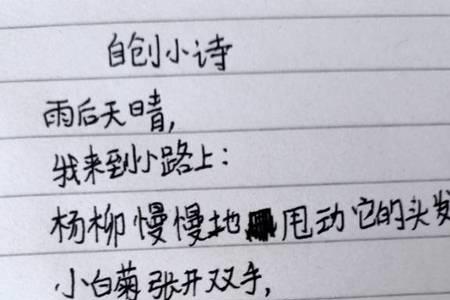 自创小诗
雨后天晴,
我来到小路上:
杨柳慢慢地甩动它的头发
小白菊张开双手,